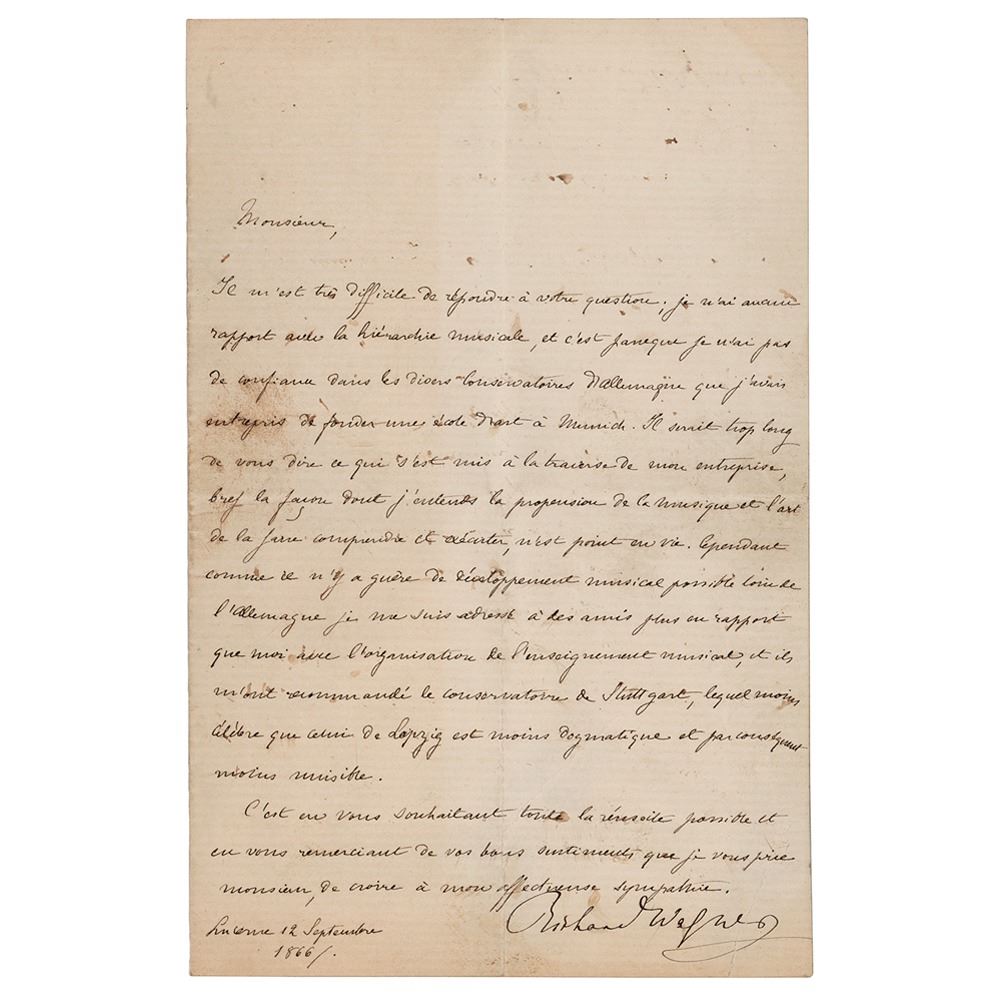 Monsieur,
Il m'est très difficile de répondre à votre question; je n'ai aucun
rapport avec la hiérarchie musicale, et c'est parceque je n'ai pas
de confiance dans les divers Conservatoires d'Allemagne que j'avais
entrepris de fonder une école d'art à Munich. Il serait trop long
de vous dire ce qui s'est mis à la traverse de mon entreprise,
bref la façon dont j'entends la propension de la musique et l'art
de la faire comprendre et exécuter, n'est point en vie. Cependant
comme il n'y a guère de développement musical possible loin de
l'Allemagne je me suis adressé à des amis plus en rapport
que moi avec l'organisation de l'enseignement musical, et ils
m'ont recommandé le conservatoire de Stuttgart, lequel moins
célèbre que celui de Leipzig est moins dogmatique et par conséquent
moins nuisible.
C'est en vous souhaitant toute la réussite possible et
en vous remerciant de vos bons sentiments que je vous prie
monsieur, de croire à mon affectueuse sympathie.
Richard Wagner
Lucerne 12 Septembre
1866/.